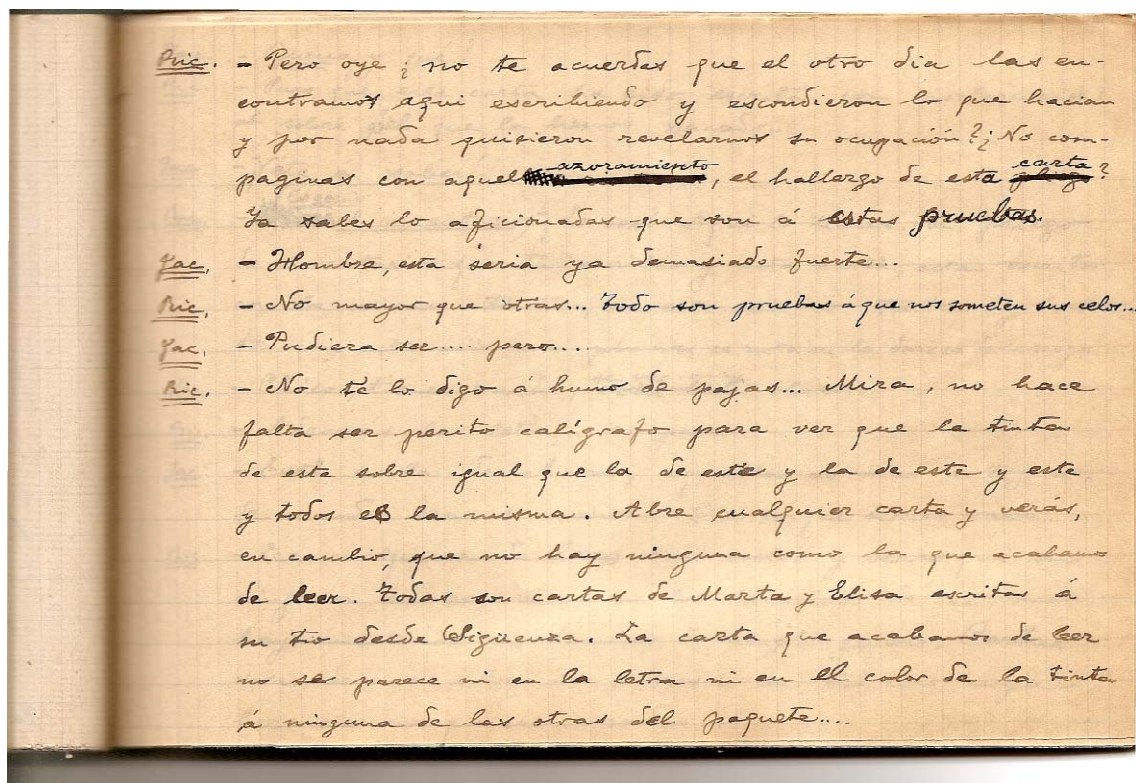 Ric. - Pero oye ¿no te acuerdas que el otro dia las en-
contramos aqui escribiendo y escondieron lo que hacian
y por nada quisieron revelarnos su ocupación? ¿No com-
paginas con aquel azoramiento, el hallazgo de esta carta?
Ya sabes lo aficionadas que son á estas pruebas.
Jac. - Hombre, esta seria ya demasiado fuerte...
Ric. - No mayor que otras... Todo son pruebas á que nos someten sus celos...
Jac. - Pudiera ser.... pero....
Ric. - No te lo digo á humo de pajas... Mira, no hace
falta ser perito calígrafo para ver que la tinta
de este sobre igual que la de este y la de este y este
y todos es la misma. Abre cualquier carta y verás,
en cambio, que no hay ninguna como la que acabamos
de leer. Todas son cartas de Marta y Elisa escritas á
su tio desde Sigüenza. La carta que acabamos de leer
no se parece ni en la letra ni en el color de la tinta
á ninguna de las otras del paquete....